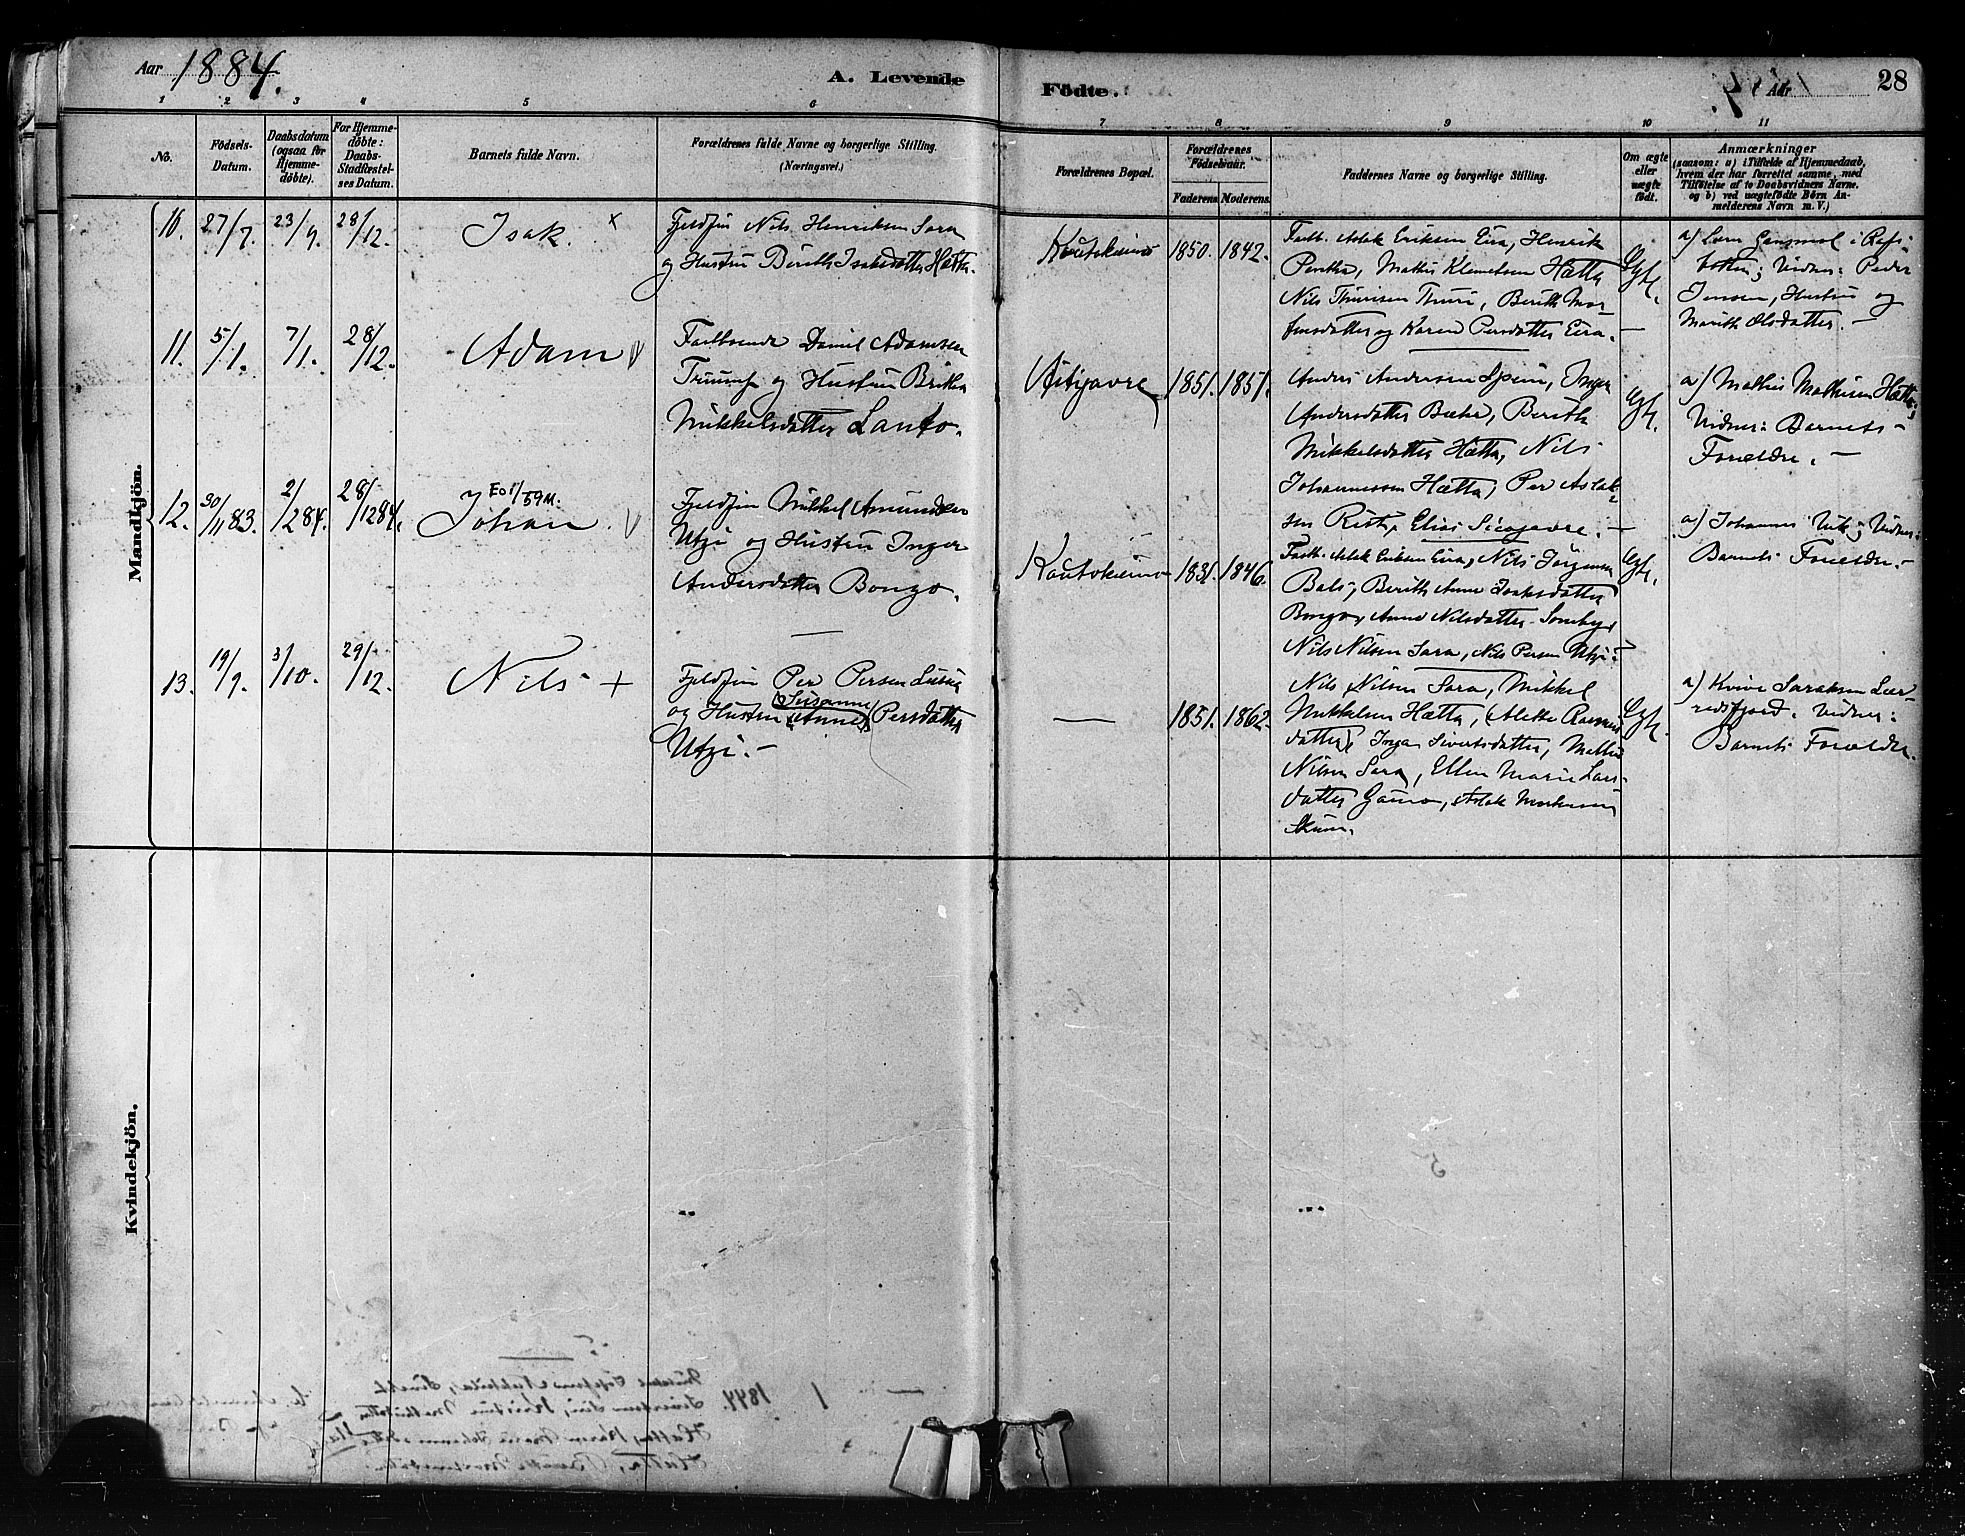 Aar 1884.
A. Levende
Födte.
Aar
28
1 2 3 4 5 6 7 8 9 10 11
No.
Födsels-
Datum.
Daabsdatum
(ogsaa for
Hjemme-
döbte).
For Hjemme-
döbte:
Daabs-
Stadfæstel-
ses Datum.
Barnets fulde Navn.
Forældrenes fulde Navne og borgerlige Stilling.
(Næringsvei.)
Forældrenes Bopæl.
Forældrenes
Födselsaar.
Faderens. Moderens.
Faddernes Navne og borgerlige Stilling.
Om ægte
eller
uægte
födt.
Anmærkninger
(saasom: a) i Tilfælde af Hjemmedaab,
hvem der har forrettet samme, med
Tilföielse af to Daabsvidners Navne.
og b) ved uægtefödte Börn An-
melderens Navn m. V.)
Mandkjön.
10. 27/7. 23/9. 28/12. Isak. x
Fjeldfin Nils Henriksen Sara
og Hustru Berith Isaksdatter Hætta.
Koutokeino 1850. 1842.
Fastb. Aslak Eriksen Eira, Henrik
Pentha, Mathis Klemetsen Hætta
Nils Thuresen Thuri, Berith Mor-
tensdatter og Karen Persdatter Eira.
Egte.
a) Lars Gansmol i Refs-
botten; Vidner: Peder
Jensen, Hustru og
Marith Olsdatter. —
11. 5/1. 7/1. 28/12. Adam V
Fastboende Daniel Adamsen
Triumf og Hustru Brita
Mikkelsdatter Lanto.
1851. 1857.
Anders Andersen Spein, Inger
Andersdatter Bæhr, Berith
Mikkelsdatter Hætta, Nils
Johannessen Hætta, Per Aslak-
sen Rist, Elias Sicajavre. —
Egte.
a) Mathis Mathisen Hætta;
Vidner: Barnets
Forældre. —
12. 30/11 83. 2/1284. 28/1284. Johan. V
E01/59M.
Fjeldfin Mikkel Amundsen
Utzi og Hustru Inger
Andersdatter Bongo.
Koutokeino 1831. 1846.
Fastb. Aslak Eriksen Eira, Nils Jörgensen
Bals, Berith Anne Isaksdatter
Bongo, Anne Nilsdatter Somby,
Nils Nilsen Sara, Nils Persen Utzi.
Egte.
a) Johannes Utzi; Vidner:
Barnets Forældre.
13. 19/9. 3/10. 29/12. Nils +
Fjeldfin Per Persen
og Hustru (Anne) Persdatter
Susanne
Utzi. —
— 1851. 1862.
Nils Nilsen Sara, Mikkel
Mikkelsen Hætta, Alette Rasmus-
datter, Inga Sivertsdatter, Mathis
Nilsen Sara, Ellen Marie Lars-
datter Gaino, Aslak Mathisen
Skum.
Egte.
a) Kvive Saraksen Lær-
redsfjord. Vidner:
Barnets Forældre.
Kvindekjön.